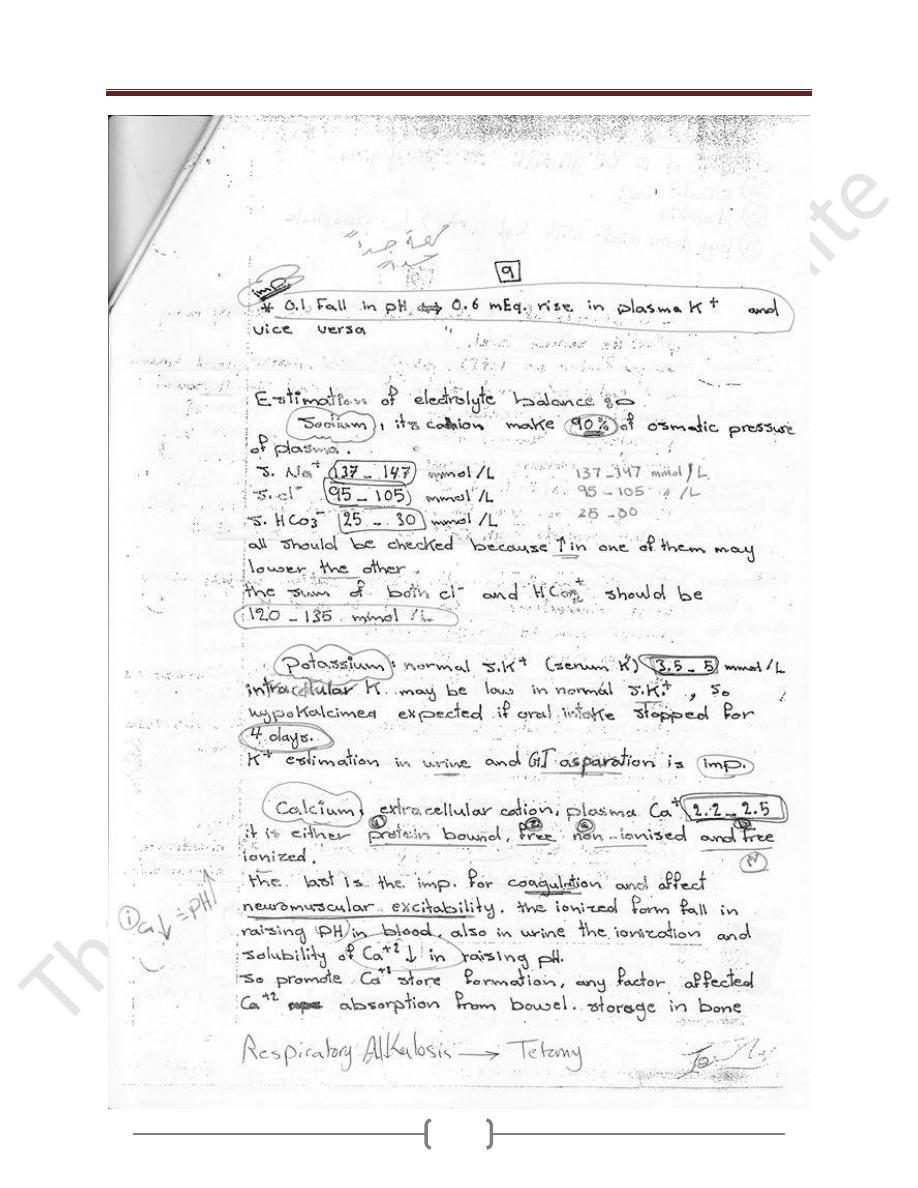 مهمة جداً
9
imp
* 0.1 Fall in pH ⟺ 0.6 mEq. rise in plasma K+ and
vice versa
Estimation of electrolyte balance :-
Sodium, its cation make 90% of osmatic pressure
of plasma.
S. Na+ 137 - 147 mmol/L 137 - 147 mmol/L
S. cl- 95 - 105 mmol/L 95 - 105 " /L
S. HCO3- 25 - 30 mmol/L 25 - 30
all should be checked because ↑ in one of them may
lower the other.
the sum of both cl- and HCO3 should be
120 - 135 mmol/L
potassium: normal S.K+ (serum K) 3.5 - 5 mmol/L
intracellular K may be low in normal S.K+, so
hypokalcimea expected if oral intake stopped for
4 days.
K+ estimation in urine and GI asparation is imp.
Calcium, extracellular cation, plasma Ca+ 2.2 - 2.5
it is either protein bound, free non-ionised and free
ionized.
the last is the imp. for coagulation and affect
neuromuscular excitability. the ionized form fall in
raising PH in blood, also in urine the ionization and
solubility of Ca+2 ↓ in raising pH.
so promote Ca+2 store formation, any factor affected
Ca+2 absorption from bowel. storage in bone
i Ca↓ = pH↑
Respiratory Alkalosis → Tetany